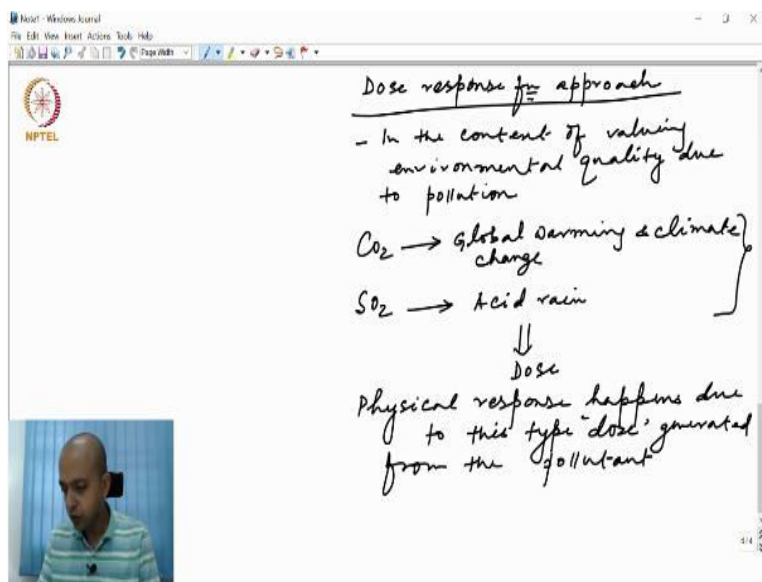 Note1 - Windows Journal
File Edit View Insert Actions Tools Help
Page Width
NPTEL
Dose response fn approach
- In the content of valuing
environmental quality due
to pollution
CO2 → Global warming & climate
change
SO2 → Acid rain
⇓
Dose
Physical response happens due
to this type "dose" generated
from the pollutant
4/4